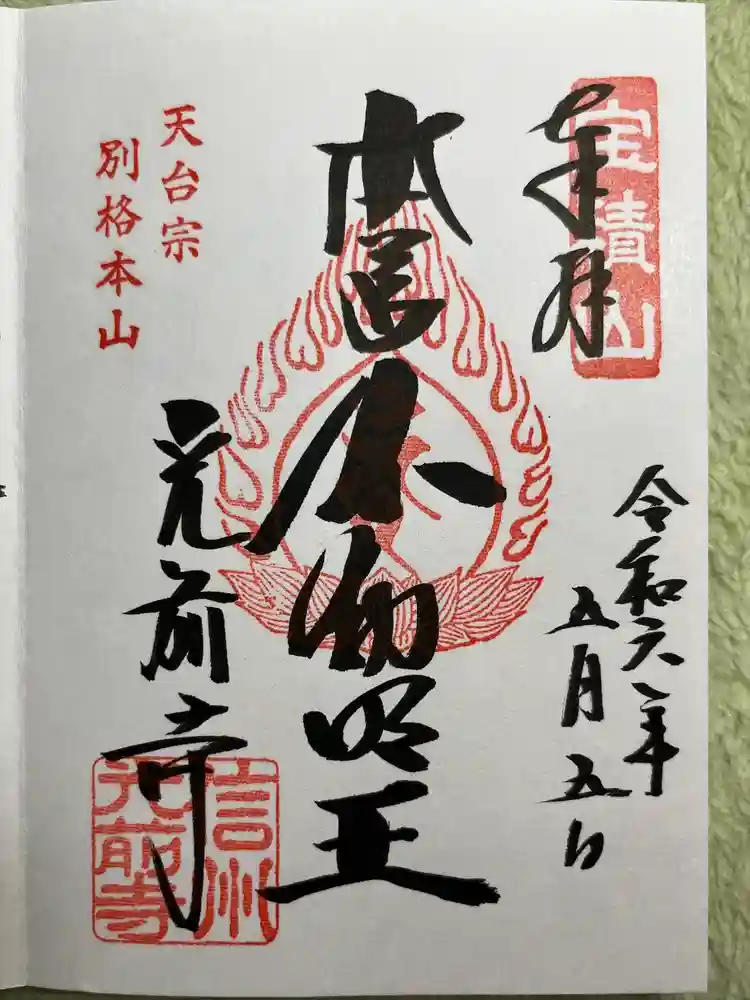 奉拝
宝積山
令和六年
五月五日
本尊
不動明王
天台宗
別格本山
光前寺
信州
光前寺